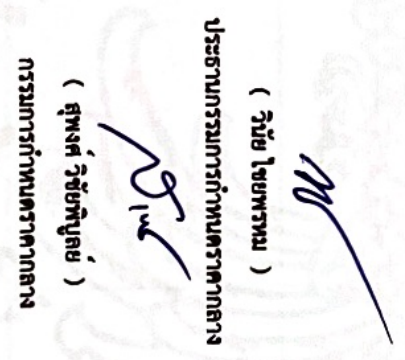 ( วินัย ไชยพรหม )
ประธานกรรมการกำหนดราคากลาง
( สุพงศ์ วิชัยพิบูลย์ )
กรรมการกำหนดราคากลาง